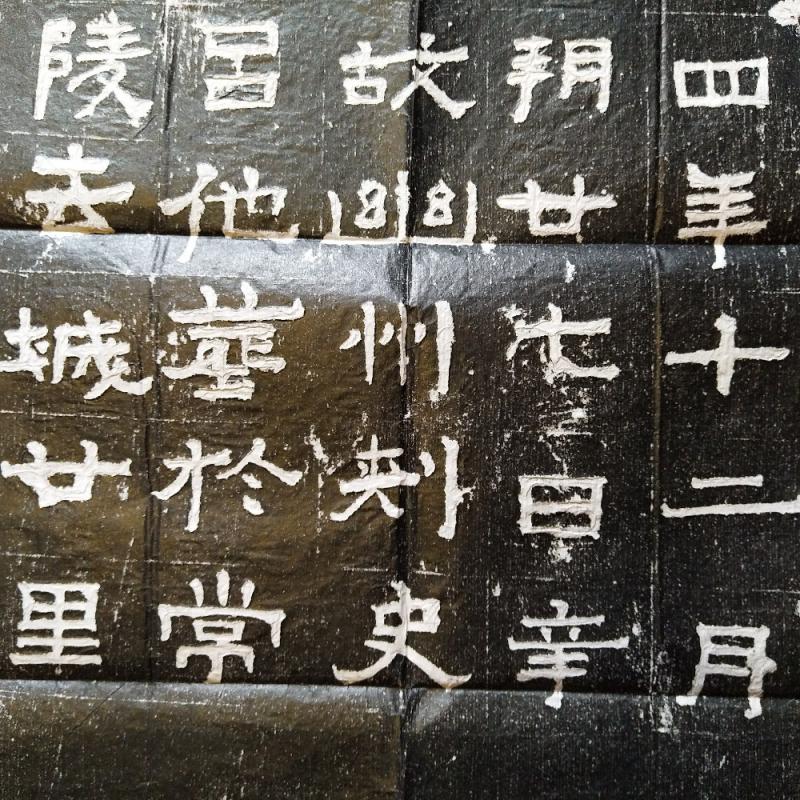 四年十二月
朔廿七日辛
故幽州刺史
呂他葬於常
陵去城廿里